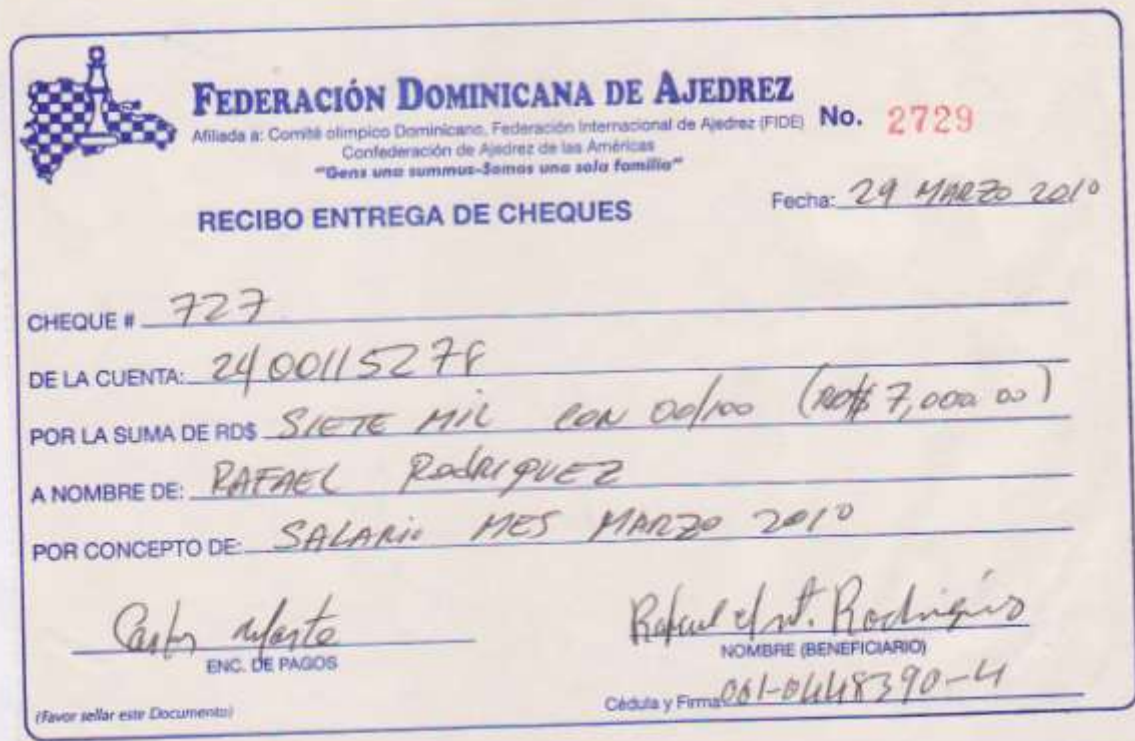 FEDERACIÓN DOMINICANA DE AJEDREZ
Afiliada a: Comité olimpico Dominicano, Federación Internacional de Ajedrez (FIDE) No. 2729
Confederación de Ajedrez de las Américas
"Gens una summus-Somos una sola familia"
RECIBO ENTREGA DE CHEQUES
Fecha: 29 MARZO 2010
CHEQUE # 727
DE LA CUENTA: 2400115278
POR LA SUMA DE RD$ SIETE MIL CON 00/100 (RD$ 7,000.00)
A NOMBRE DE: RAFAEL RODRIGUEZ
POR CONCEPTO DE: SALARIO MES MARZO 2010
Rafael Rodriguez
ENC. DE PAGOS
NOMBRE (BENEFICIARIO)
Cédula y Firma 001-0448390-4
(Favor sellar este Documento)